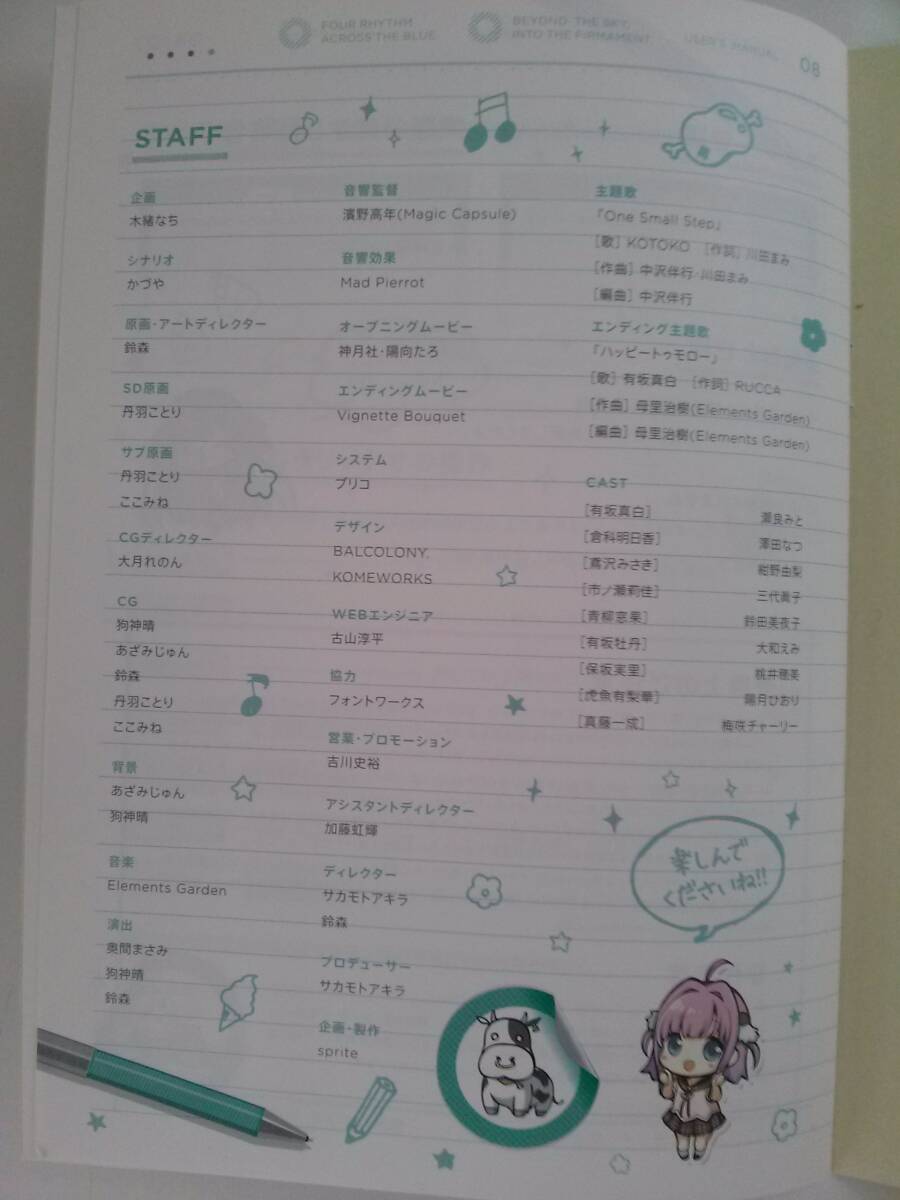 FOUR RHYTHM
ACROSS THE BLUE
BEYOND THE SKY,
INTO THE FIRMAMENT
USER'S MANUAL
08
STAFF
企画
木緒なち
シナリオ
かづや
原画・アートディレクター
鈴森
SD原画
丹羽ことり
サブ原画
丹羽ことり
ここみね
CGディレクター
大月れのん
CG
狗神晴
あざみじゅん
鈴森
丹羽ことり
ここみね
背景
あざみじゅん
狗神晴
音楽
Elements Garden
演出
奥間まさみ
狗神晴
鈴森
音響監督
濱野高年(Magic Capsule)
音響効果
Mad Pierrot
オープニングムービー
神月社・陽向たろ
エンディングムービー
Vignette Bouquet
システム
ブリコ
デザイン
BALCOLONY.
KOMEWORKS
WEBエンジニア
古山淳平
協力
フォントワークス
営業・プロモーション
吉川史裕
アシスタントディレクター
加藤虹輝
ディレクター
サカモトアキラ
鈴森
プロデューサー
サカモトアキラ
企画・製作
sprite
主題歌
「One Small Step」
[歌] KOTOKO [作詞] 川田まみ
[作曲] 中沢伴行/川田まみ
[編曲] 中沢伴行
エンディング主題歌
「ハッピートゥモロー」
[歌] 有坂真白 [作詞] RUCCA
[作曲] 母里治樹(Elements Garden)
[編曲] 母里治樹(Elements Garden)
CAST
[有坂真白] 瀬良みと
[倉科明日香] 澤田なつ
[鳶沢みさき] 紺野由梨
[市ノ瀬莉佳] 三代眞子
[青柳窓果] 鈴田美夜子
[有坂牡丹] 大和えみ
[保坂実里] 桃井穂美
[虎魚有梨華] 陽月ひおり
[真藤一成] 梅咲チャーリー
楽しんで
くださいね!!